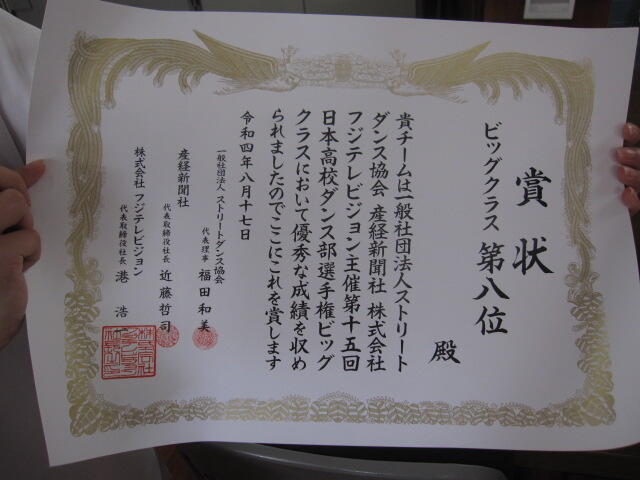 賞状
ビッグクラス 第八位
殿
貴チームは一般社団法人ストリート
ダンス協会 産経新聞社 株式会社
フジテレビジョン主催第十五回
日本高校ダンス部選手権ビッグ
クラスにおいて優秀な成績を収め
られましたのでここにこれを賞します
令和四年八月十七日
一般社団法人 ストリートダンス協会
代表理事 福田和美
産経新聞社
代表取締役社長 近藤哲司
株式会社 フジテレビジョン
代表取締役社長 港浩一